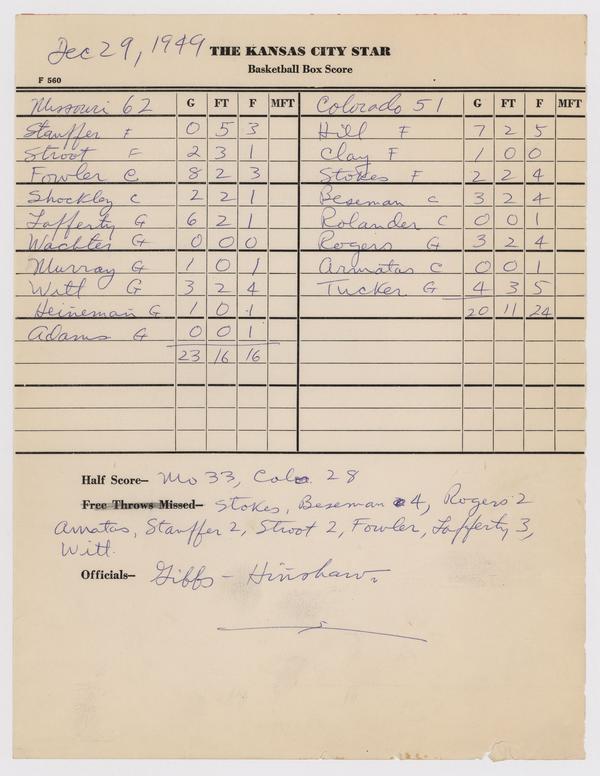 Dec 29, 1949 THE KANSAS CITY STAR
Basketball Box Score
F 560
Missouri 62 G FT F MFT Colorado 51 G FT F MFT
Stauffer F 0 5 3 Hill F 7 2 5
Stroot F 2 3 1 Clay F 1 0 0
Fowler C 8 2 3 Stokes F 2 2 4
Shockley C 2 2 1 Beseman C 3 2 4
Lafferty G 6 2 1 Rolander C 0 0 1
Wachter G 0 0 0 Rogers G 3 2 4
Murray G 1 0 1 Armatas C 0 0 1
Witt G 3 2 4 Tucker G 4 3 5
Heineman G 1 0 1 20 11 24
Adams G 0 0 1
23 16 16
Half Score— Mo 33, Colo. 28
Free Throws Missed— Stokes, Beseman 4, Rogers 2
Amatas, Stauffer 2, Stroot 2, Fowler, Lafferty 3,
Witt.
Officials— Gibbs – Hinshaw.